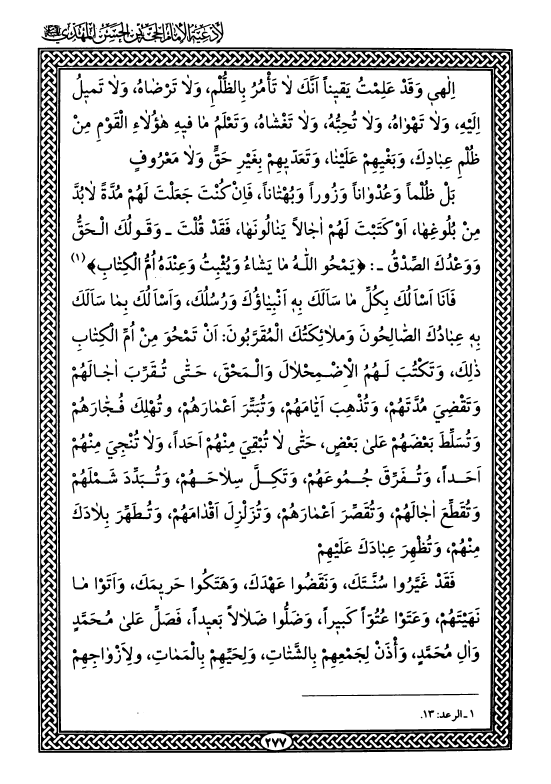 لأدعية الإمام الحجة بن الحسن المهدي
اِلٰهي وَقَدْ عَلِمْتُ يَقيناً اَنَّكَ لاٰ تَأْمُرُ بِالظُّلْمِ، وَلاٰ تَرْضاٰهُ، وَلاٰ تَميلُ
اِلَيْهِ، وَلاٰ تَهْوٰاهُ، وَلاٰ تُحِبُّهُ، وَلاٰ تَغْشاٰهُ، وَتَعْلَمُ مٰا فيهِ هٰؤُلاٰءِ الْقَوْمِ مِنْ
ظُلْمِ عِبٰادِكَ، وَبَغْيِهِمْ عَلَيْنٰا، وَتَعَدّيهِمْ بِغَيْرِ حَقٍّ وَلاٰ مَعْرُوفٍ
بَلْ ظُلْماً وَعُدْوٰاناً وَزُوراً وَبُهْتٰاناً، فَاِنْ كُنْتَ جَعَلْتَ لَهُمْ مُدَّةً لاٰبُدَّ
مِنْ بُلُوغِهٰا، اَوْ كَتَبْتَ لَهُمْ اٰجٰالاً يَنٰالُونَهٰا، فَقَدْ قُلْتَ ـ وَقَولُكَ الْحَقُّ
وَوَعْدُكَ الصِّدْقُ ـ: ﴿يَمْحُو اللّٰهُ مٰا يَشٰاءُ وَيُثْبِتُ وَعِنْدَهُ اُمُّ الْكِتٰابِ﴾(١)
فَاَنَا اَسْاَلُكَ بِكُلِّ مٰا سَاَلَكَ بِهِ اَنْبِيٰاؤُكَ وَرُسُلُكَ، وَاَسْاَلُكَ بِمٰا سَاَلَكَ
بِهِ عِبٰادُكَ الصّٰالِحُونَ وَمَلاٰئِكَتُكَ الْمُقَرَّبُونَ: اَنْ تَمْحُوَ مِنْ اُمِّ الْكِتٰابِ
ذٰلِكَ، وَتَكْتُبَ لَهُمُ الْاِضْمِحْلاٰلَ وَالْمَحْقَ، حَتّٰى تُقَرِّبَ اٰجٰالَهُمْ
وَتَقْضِيَ مُدَّتَهُمْ، وَتُذْهِبَ اَيّٰامَهُمْ، وَتُبَتِّرَ اَعْمٰارَهُمْ، وتُهْلِكَ فُجّٰارَهُمْ
وَتُسَلِّطَ بَعْضَهُمْ عَلىٰ بَعْضٍ، حَتّٰى لاٰ تُبْقِيَ مِنْهُمْ اَحَداً، وَلاٰ تُنْجِيَ مِنْهُمْ
اَحَداً، وَتُفَرِّقَ جُمُوعَهُمْ، وَتَكِلَّ سِلاٰحَهُمْ، وَتُبَدِّدَ شَمْلَهُمْ
وَتُقَطِّعَ اٰجٰالَهُمْ، وَتُقَصِّرَ اَعْمٰارَهُمْ، وَتُزَلْزِلَ اَقْدٰامَهُمْ، وَتُطَهِّرَ بِلاٰدَكَ
مِنْهُمْ، وَتُظْهِرَ عِبٰادَكَ عَلَيْهِمْ
فَقَدْ غَيَّرُوا سُنَّتَكَ، وَنَقَضُوا عَهْدَكَ، وَهَتَكُوا حَريمَكَ، وَاَتَوْا مٰا
نَهَيْتَهُمْ، وَعَتَوْا عُتُوّاً كَبيراً، وَضَلُّوا ضَلاٰلاً بَعيداً، فَصَلِّ عَلىٰ مُحَمَّدٍ
وَاٰلِ مُحَمَّدٍ، وَأْذَنْ لِجَمْعِهِمْ بِالشَّتٰاتِ، وَلِحَيِّهِمْ بِالْمَمٰاتِ، وَلِاَزْوٰاجِهِمْ
١ ـ الرعد: ١٣.
٢٧٧